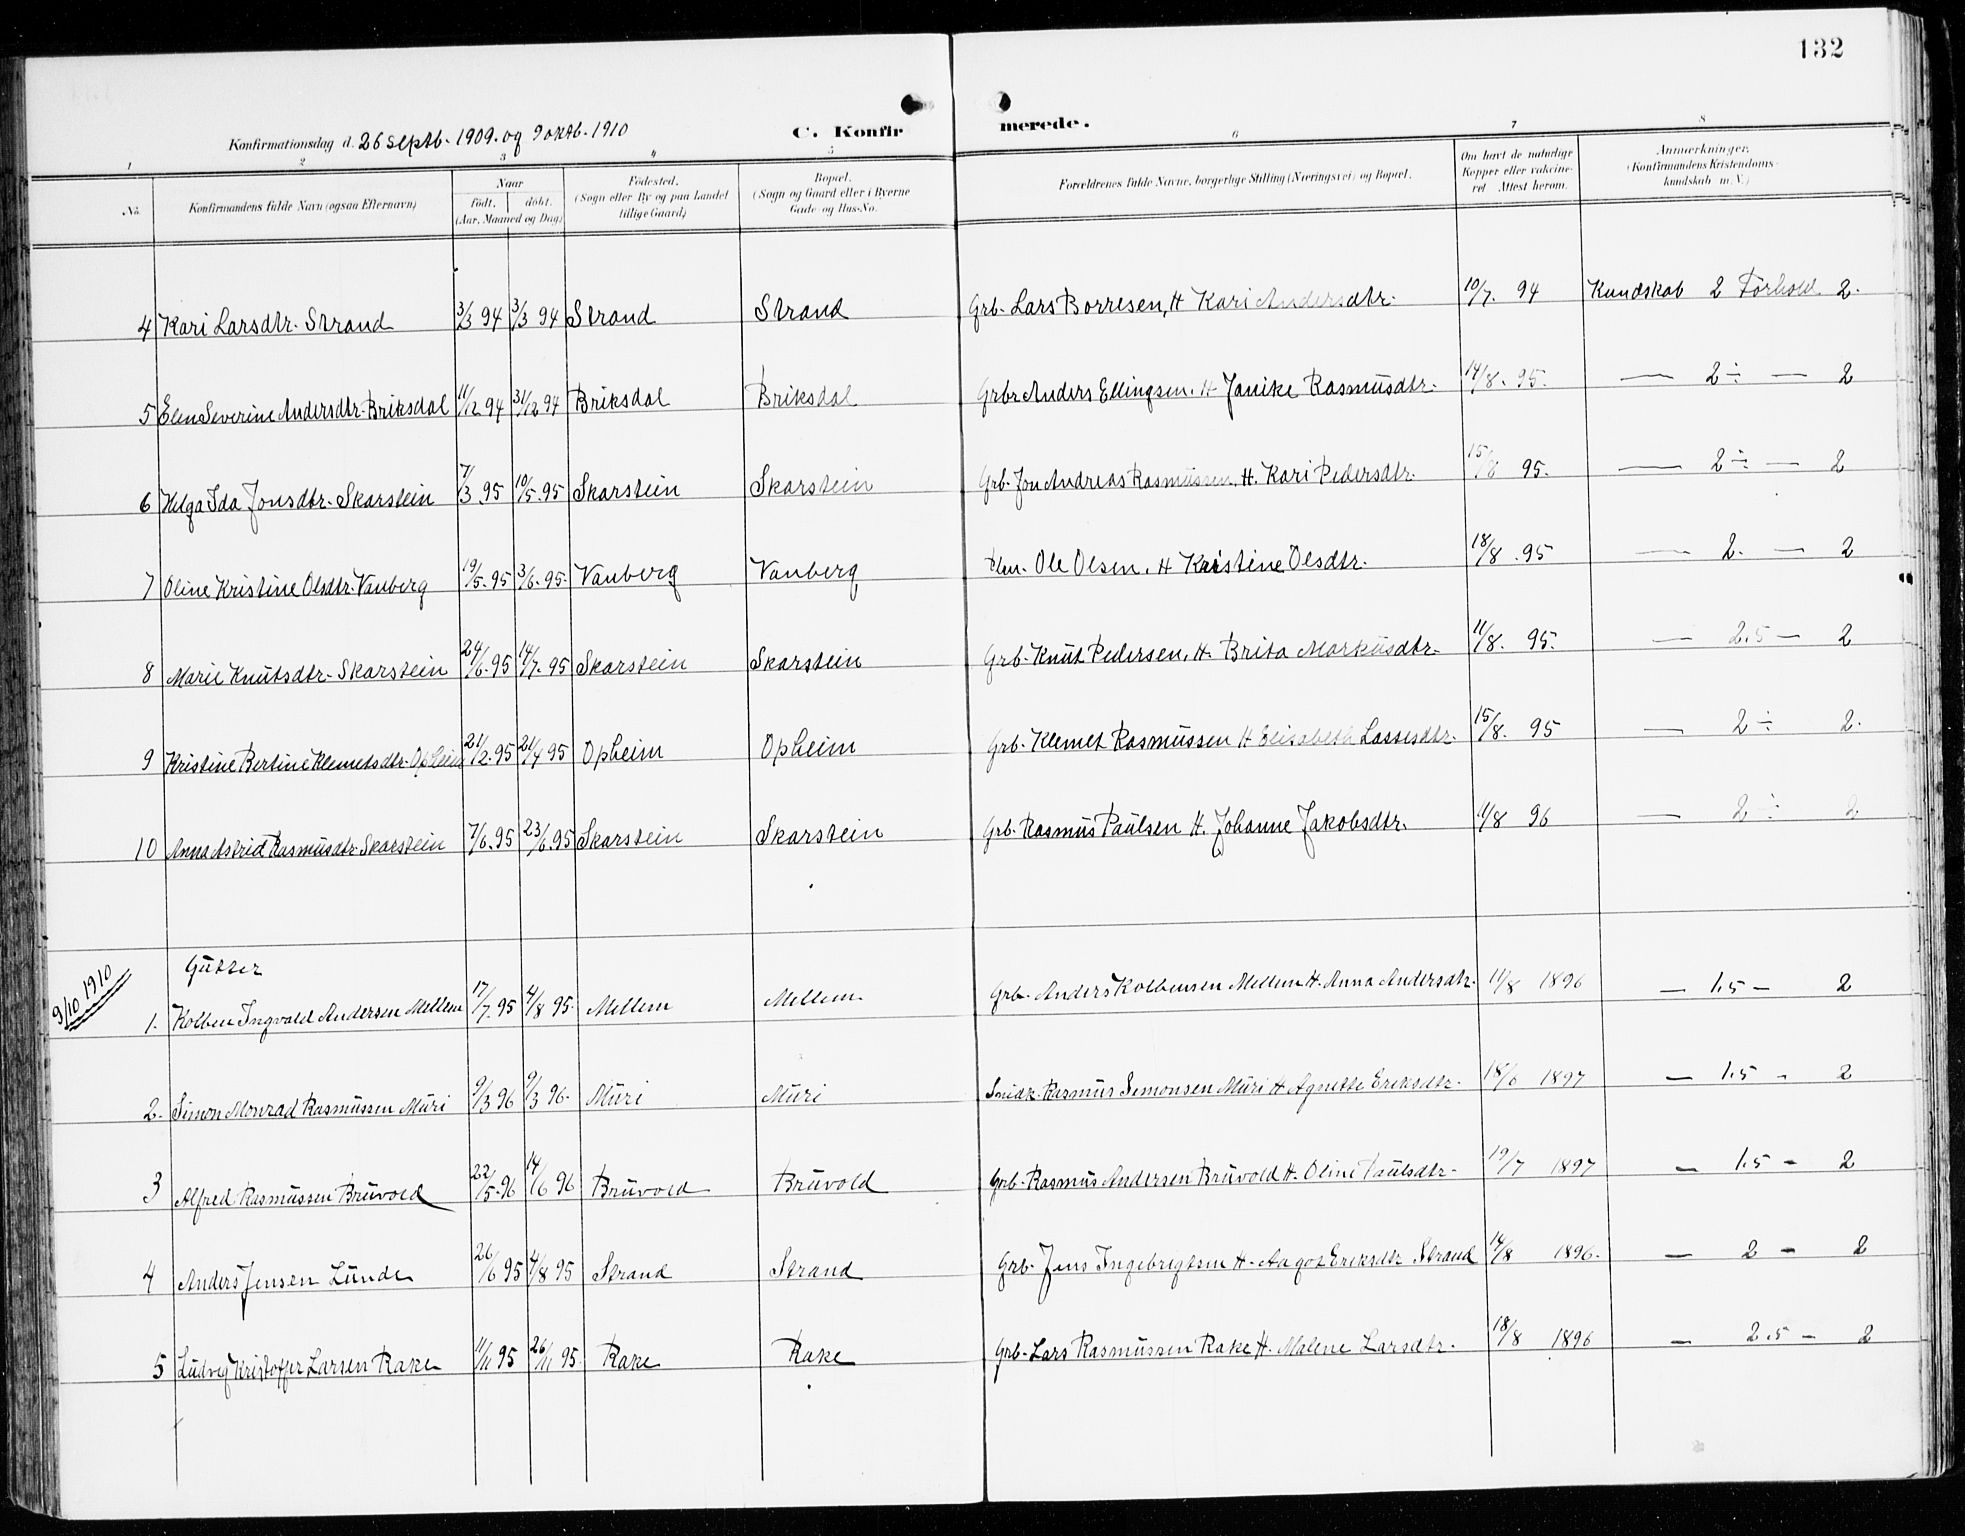 132
Konfirmationsdag d. 26 Septb. 1909. og 9 oktb. 1910
C. Konfirmerede.
1 2 3 4 5 6 7 8
No. Konfirmandens fulde Navn (ogsaa Efternavn) Naar født. døbt. (Aar, Maaned og Dag) Fødested. (Sogn eller By og paa Landet tillige Gaard) Bopæl. (Sogn og Gaard eller i Byerne Gade og Hus-No. Forældrenes fulde Navne, borgerlige Stilling (Næringsvei) og Bopæl. Om havt de naturlige Kopper eller vakcineret. Attest herom. Anmærkninger. (Konfirmandens Kristendomskundskab m. V.)
4 Kari Larsdtr. Strand 3/3 94 3/3 94 Strand Strand Grb. Lars Borresen, H Kari Andersdtr. 10/7. 94 Kundskab 2 Forhold 2.
5 Elen Severine Andersdtr. Briksdal 11/12 94 31/12 94 Briksdal Briksdal Grbr Anders Ellingsen. H Janike Rasmusdtr. 14/8. 95. — 2÷ — 2
6 Helga Ida Jonsdtr. Skarstein 7/3 95 10/5. 95 Skarstein Skarstein Grb. Jon Andreas Rasmussen, H. Kari Pedersdtr. 15/8 95. — 2÷ — 2
7 Oline Kristine Olsdtr. Vanberg 19/5. 95 3/6. 95. Vanberg Vanberg Ole Olsen. H Kristine Olsdtr. 18/8. 95 — 2. — 2
8 Marie Knutsdtr. Skarstein 24/6. 95 14/7. 95 Skarstein Skarstein Grb. Knut Pedersen, H. Brita Markusdtr. 11/8. 95. — 2.5 — 2
9 Kristine Bertine Klemetsdtr. Opheim 21/2. 95 21/4 95 Opheim Opheim Grb. Klemet Rasmussen H Elisabeth Lassesdtr. 15/8. 95 — 2÷ 2.
10 Anna Astrid Rasmusdtr. Skarstein 7/6. 95 23/6. 95 Skarstein Skarstein Grb. Rasmus Paulsen H. Johanne Jakobsdtr. 11/8 96 — 2÷ 2.
9/10 1910 Gutter
1. Kolben Ingvald Andersen Mellem 17/7. 95 4/8 95. Mellem Mellem Grb. Anders Kolbensen Mellem H. Anna Andersdtr. 11/8 1896 — 1.5 — 2
2. Simon Monrad Rasmussen Muri 9/3 96 9/3 96. Muri Muri Snidk. Rasmus Simonsen Muri H Agnethe Eriksdtr. 18/6 1897 — 1.5 - 2
3 Alfred Rasmussen Bruvold 22/5. 96 14/6 96 Bruvold Bruvold Grb. Rasmus Andersen Bruvold H. Oline Paulsdtr. 19/7 1897 — 1.5 - 2
4 Anders Jensen Lunde 26/6 95 4/8 95 Strand Strand Grb. Jens Ingebrigtsen H. Aagot Eriksdtr Strand 14/8 1896. — 2 — 2
5 Ludvig Kristoffer Larsen Rake 11/11 95 26/11 95. Rake Rake Grb. Lars Rasmussen Rake H. Malene Larsdtr. 18/8 1896 — 2.5 — 2